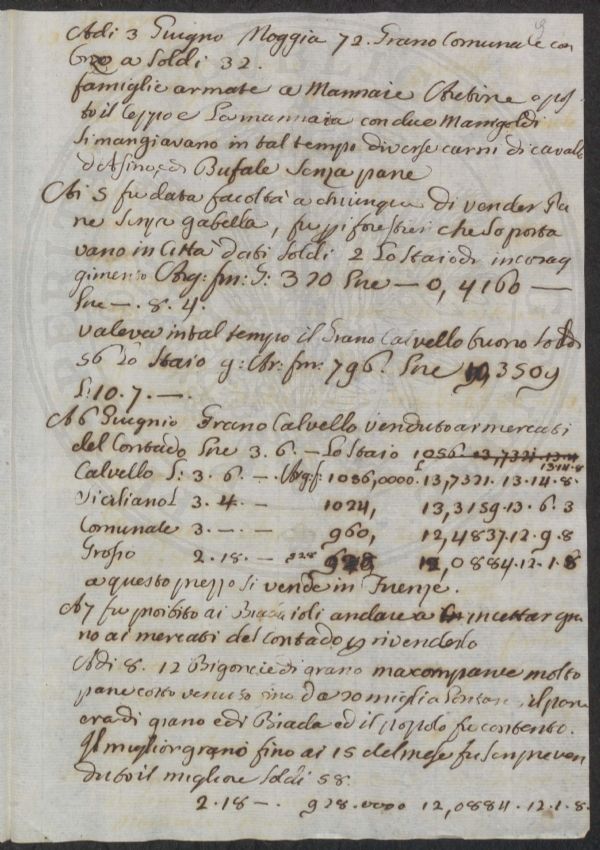 Adi 3 Giugno Moggia 72. Grano Comunale con
a Soldi 32.
famiglie armate a Mannaie Aretine
to il Ceppo e La mannaia con due Manigoldi
Si mangiavano in tal tempo diverse carni di cavallo
d'Asino, ed Bufale Senza pane
Ai 5 fu data facoltà a chiunque di vender Pa
ne senza gabella, fu forestieri che lo porta
vano in Città dati Soldi 2 Lo Staio di incorag
gimento Arg: fm: G: 320 Lire — 0, 4160 —
Lire — . 8. 4.
valeva in tal tempo il Grano Calvello buono Soldi
56 lo Staio g: Ar: fm: 796. Lire 10,3509
L: 10. 7. — .
A 6 Giugnio Grano Calvello venduto ai mercati
del Contado Lire 3. 6. — Lo Staio 1056. 13,7321 13.14
13.14.8
Calvello L: 3. 6. — Arg: f: 1056,0000. 13,7321. 13.14.8.
Siciliano L 3. 4. — 1024, 13,3159.13.6.3
Comunale 3. — . — 960, 12,4837.12.9.8
Grosso 2.18. — 928 928 12,0884.12.1.8
a questo prezzo si vende in Firenze.
A 7 fu proibito ai Biadaioli andare a incettar gra
no ai mercati del Contado rivenderlo
Adi 8. 12 Bigoncie di grano ma comparve molto
pane cotto venuto fino da 20 miglia Lontano, il pane
era di grano e di Biada ed il popolo fu contento.
Il miglior grano fino ai 15 del mese fu sempre ven
duto il migliore Soldi 58.
2.18 — . 928.0000 12,0884.12.1.8.